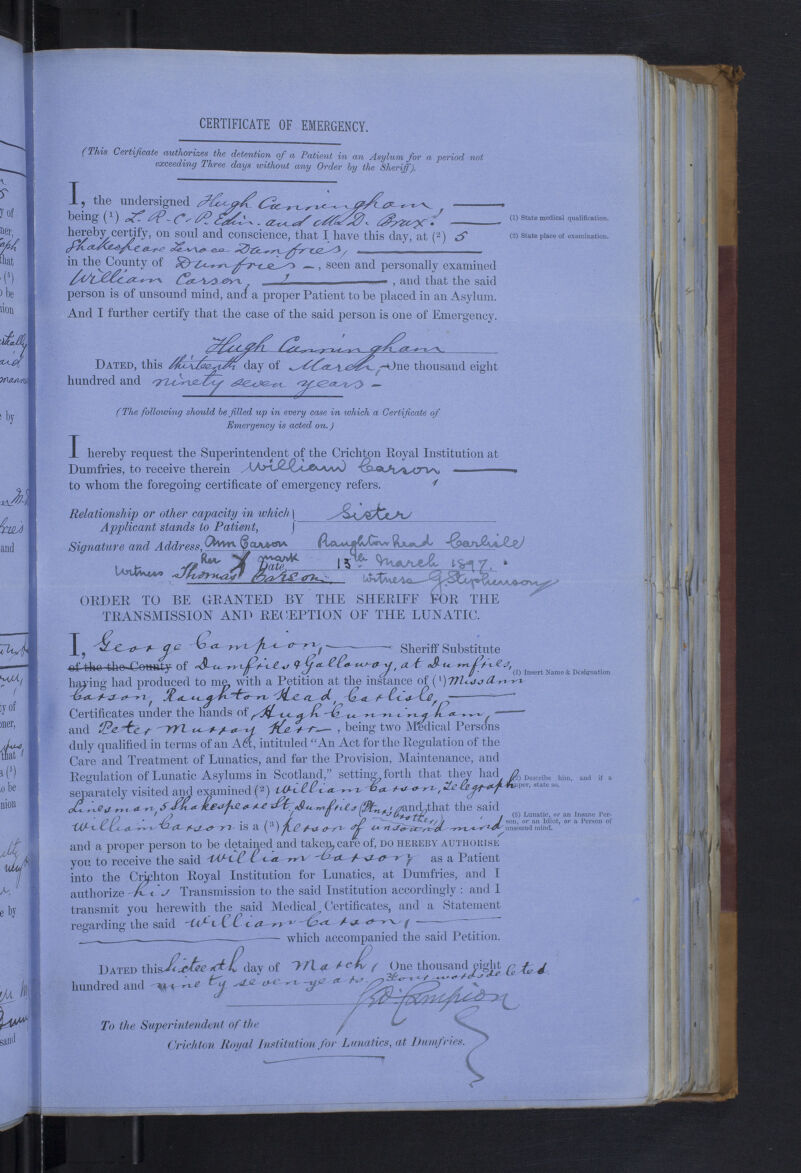 CERTIFICATE OF EMERGENCY.
(This Certificate authorizes the detention of a Patient in an Asylum for a period not
exceeding Three days without any Order by the Sheriff).
I, the undersigned Hugh Cunningham
being (1) L. R. C. P. Edin. and M. D. Brux.
(1) State medical qualification.
hereby certify, on soul and conscience, that I have this day, at (2) 5
(2) State place of examination.
Shakespeare Terrace Dumfries,
in the County of Dumfries, seen and personally examined
William Carson, and that the said
person is of unsound mind, and a proper Patient to be placed in an Asylum.
And I further certify that the case of the said person is one of Emergency.
Hugh Cunningham
DATED, this thirteenth day of March, One thousand eight
hundred and ninety seven years
(The following should be filled up in every case in which a Certificate of
Emergency is acted on.)
I hereby request the Superintendent of the Crichton Royal Institution at
Dumfries, to receive therein William Carson
to whom the foregoing certificate of emergency refers.
Relationship or other capacity in which
Applicant stands to Patient, Sister
Signature and Address, Ann Carson Raughton Head Carlisle
her X mark
Date 13th March 1897.
Witness Thomas Carson witness G Stephenson
ORDER TO BE GRANTED BY THE SHERIFF FOR THE
TRANSMISSION AND RECEPTION OF THE LUNATIC.
I, George Campion, Sheriff Substitute
of the the County of Dumfries & Galloway, at Dumfries,
having had produced to me, with a Petition at the instance of (1) Miss Ann
(1) Insert Name & Designation
Carson, Raughton Head, Carlisle,
Certificates under the hands of Hugh Cunningham,
and Peter Murray Kerr, being two Medical Persons
duly qualified in terms of an Act, intituled "An Act for the Regulation of the
Care and Treatment of Lunatics, and for the Provision, Maintenance, and
Regulation of Lunatic Asylums in Scotland," setting forth that they had
(2) Describe him, and if a
pauper, state so.
separately visited and examined (2) William Carson, Telegraph
Linesman, 5 Shakespeare St, Dumfries brother and that the said
William Carson is a (3) person of unsound mind
(3) Lunatic, or an Insane Per-
son, or an Idiot, or a Person of
unsound mind.
and a proper person to be detained and taken care of, DO HEREBY AUTHORISE
you to receive the said William Carson as a Patient
into the Crichton Royal Institution for Lunatics, at Dumfries, and I
authorize his Transmission to the said Institution accordingly: and I
transmit you herewith the said Medical Certificates, and a Statement
regarding the said William Carson,
which accompanied the said Petition.
DATED this sixteenth day of March, One thousand eight
hundred and ninety seven years Four words deleted
Geo: Campion
To the Superintendent of the
Crichton Royal Institution for Lunatics, at Dumfries.